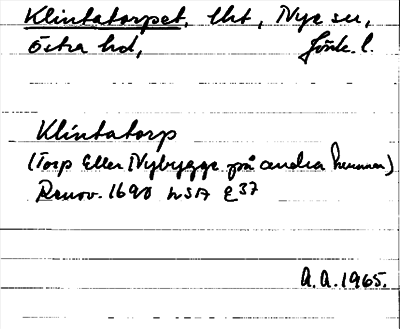 Klintatorpet, lht, Nye sn,
Östra hd, Jönk. l.
Klintatorp
(Torp Eller Nybygge på andra hemman)
Renov. 1690 LSA E37
A.A. 1965.